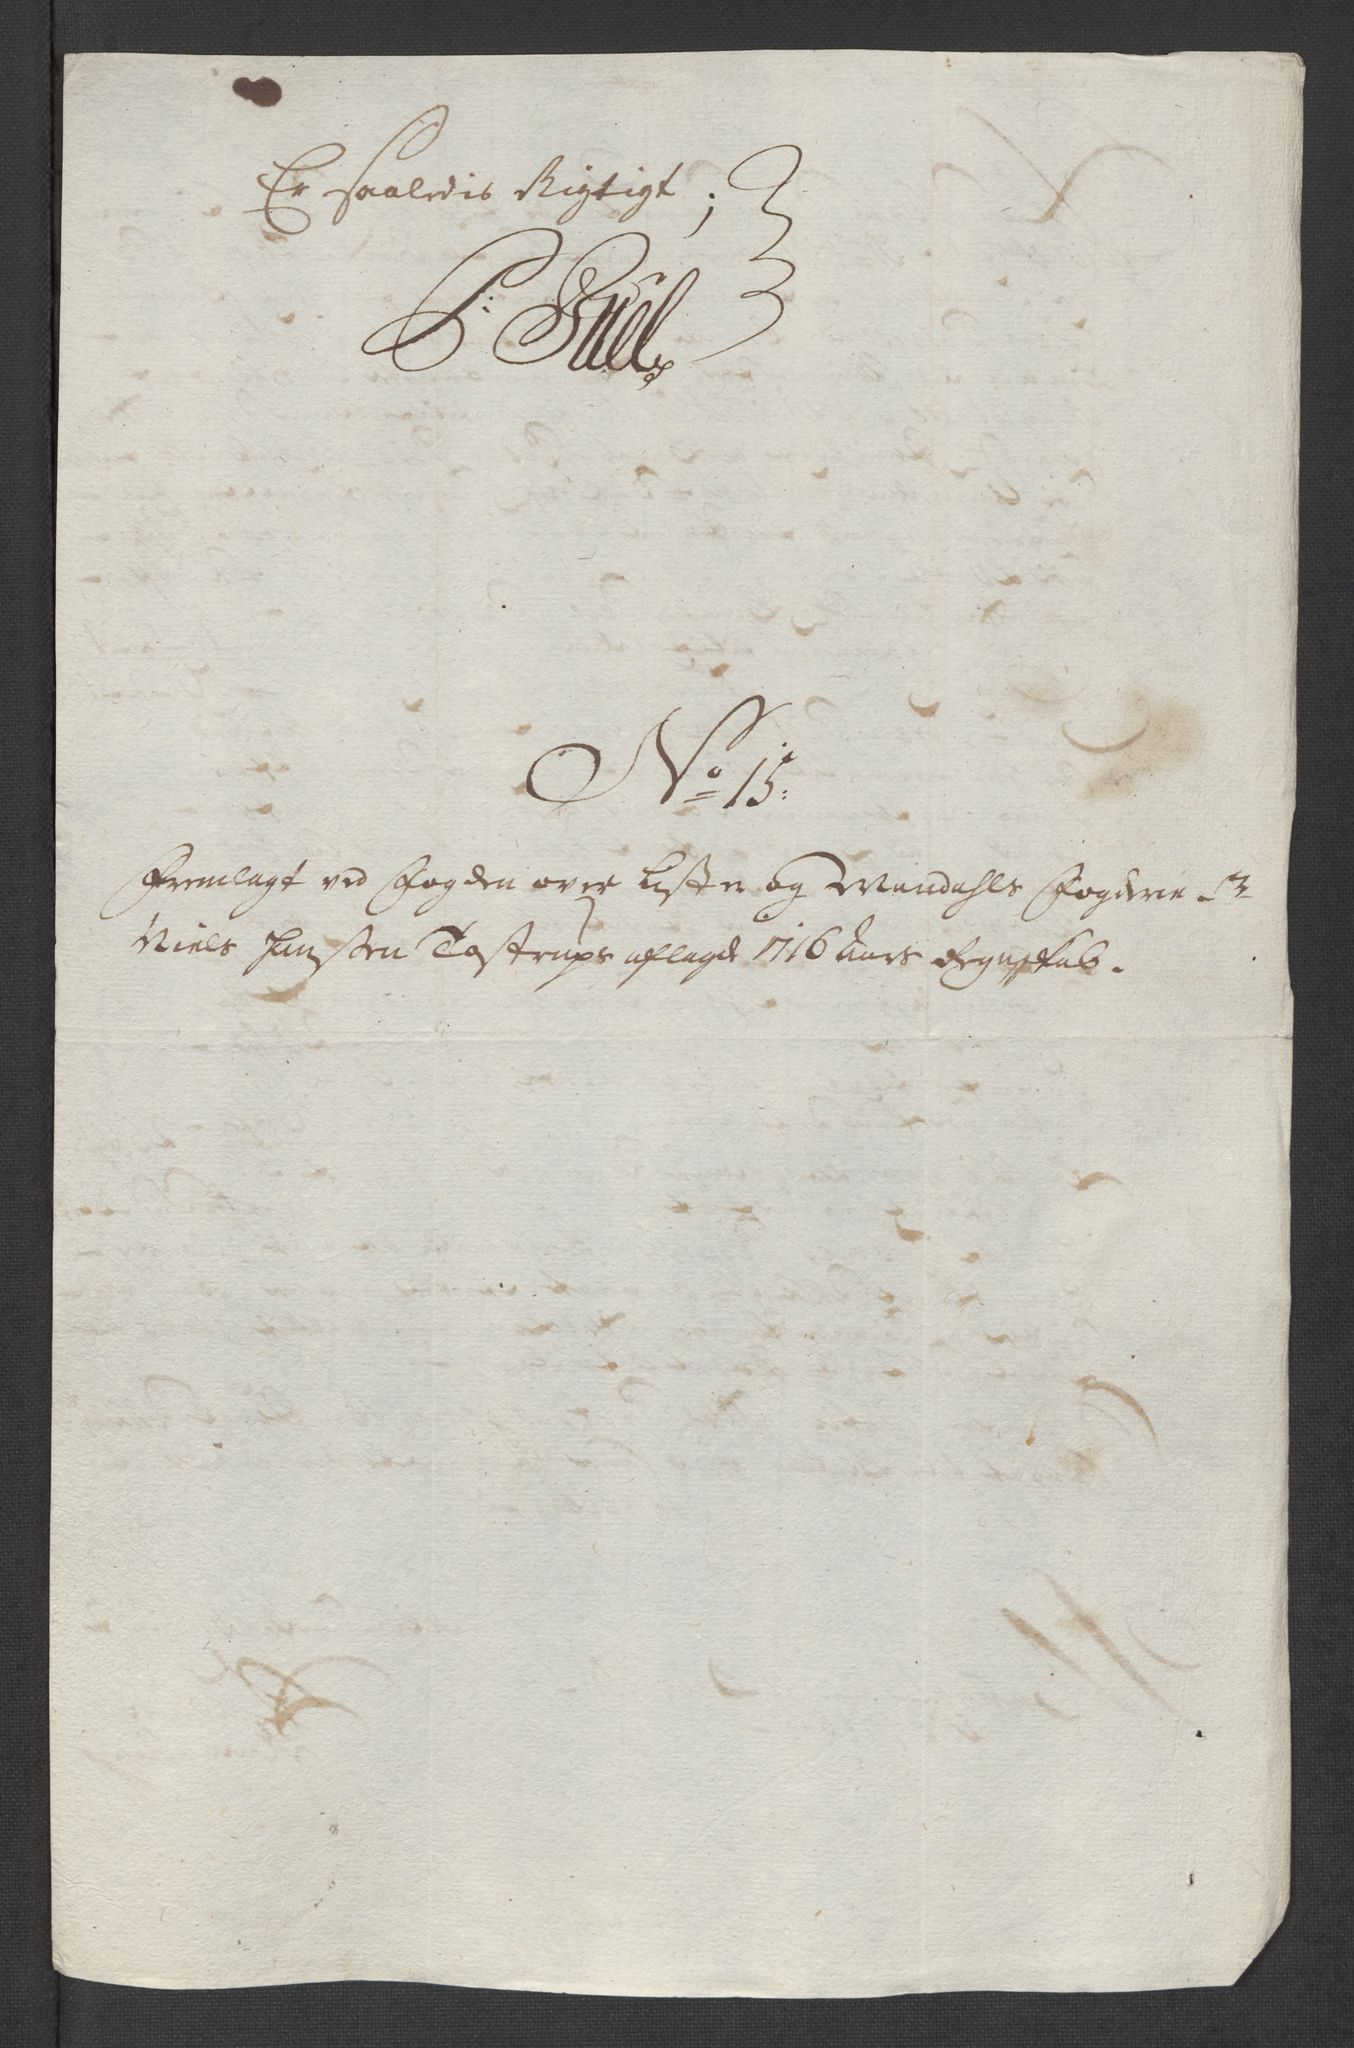 Er saaledis Rigtigt ;
P: Juel
No 15:
Fremlagt ved Fogden over Lister og Mandahls Fogderie Sr
Niels Hanssen Tostrups aflagde 1716 Aars Regnskab.